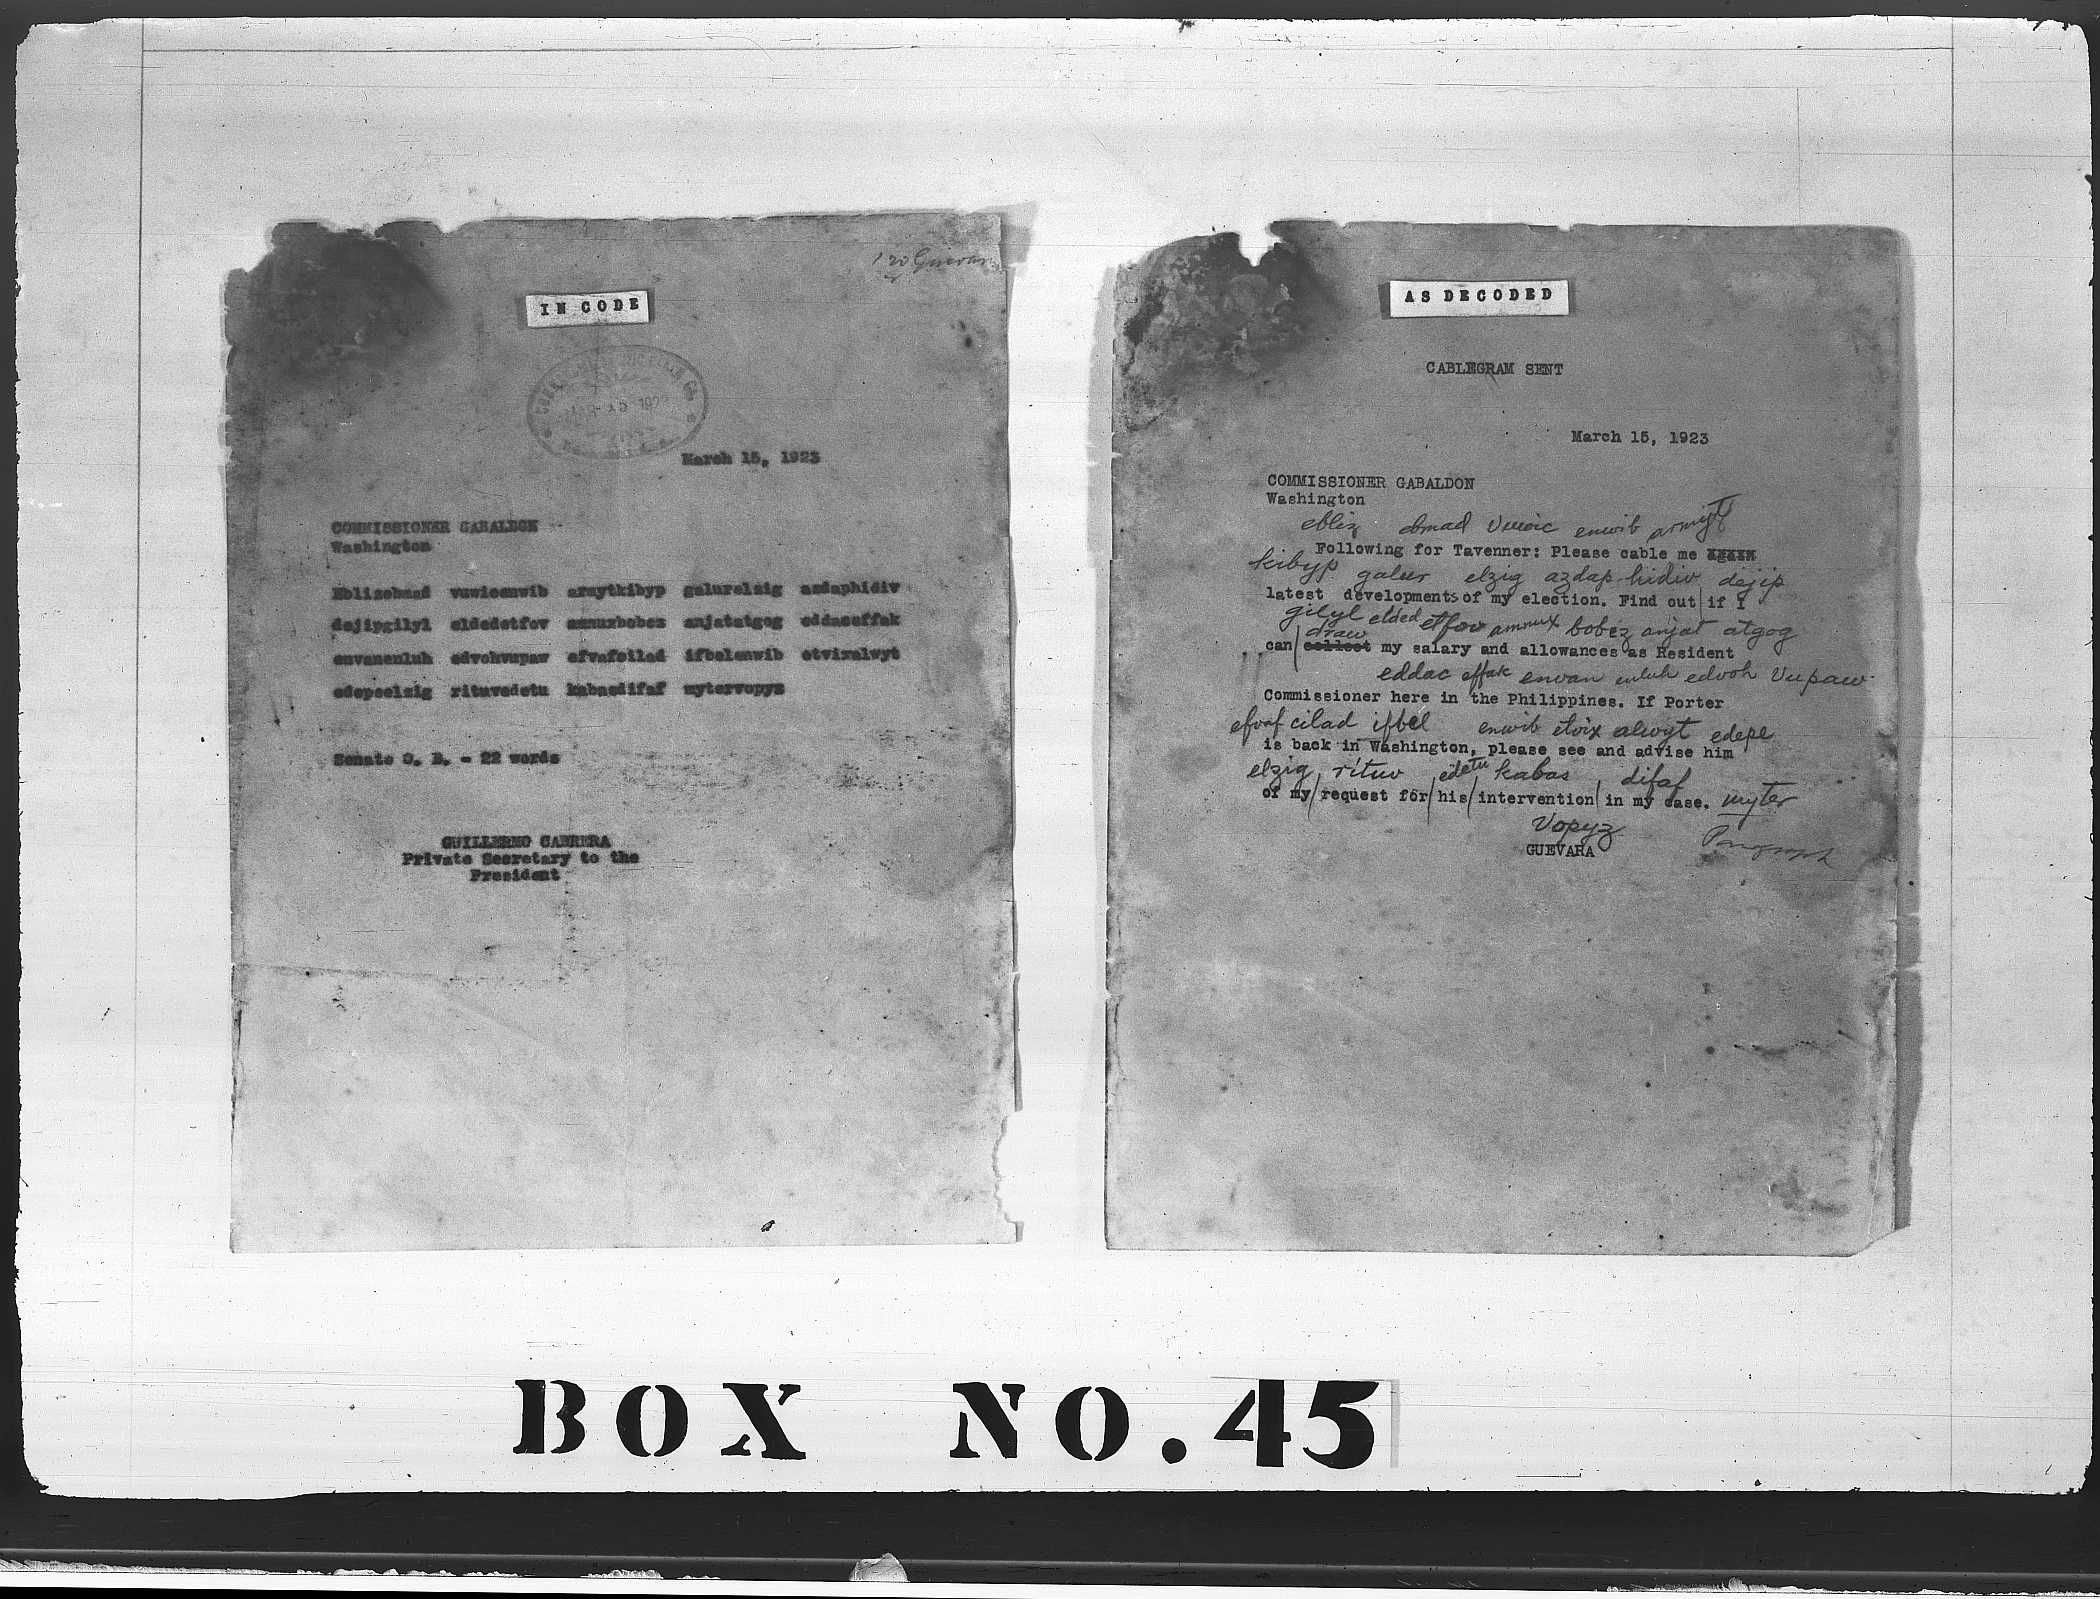 Guevara
IN CODE
MAR 15 1923
March 15, 1923
COMMISSIONER GABALDON
Washington
Eblizebmad vuwicenwib armytkibyp galurelzig azdaphidiv
dejipgilyl eldedetfov amnuxbobez anjatatgog eddaceffak
envanenluh edvohvupaw efvafcilad ifbelenwib etvixalwyt
edepeelzig rituvedetu kabasdifaf mytervopyz
Senate O. B. - 22 words
GUILLERMO CABRERA
Private Secretary to the
President
AS DECODED
CABLEGRAM SENT
March 15, 1923
COMMISSIONER GABALDON
Washington
ebliz ebmad vuwic enwib armyt
Following for Tavenner: Please cable me again
kibyp galur elzig azdap hidiv dejip
latest developments of my election. Find out if I
gilyl elded etfov amnux bobez anjat atgog
draw
can collect my salary and allowances as Resident
eddac effak envan enluh edvoh vupaw
Commissioner here in the Philippines. If Porter
efvaf cilad ifbel enwib etvix alwyt edepe
is back in Washington, please see and advise him
elzig rituv edetu kabas difaf
of my request for his intervention in my case. myter
vopyz
GUEVARA
BOX NO. 45